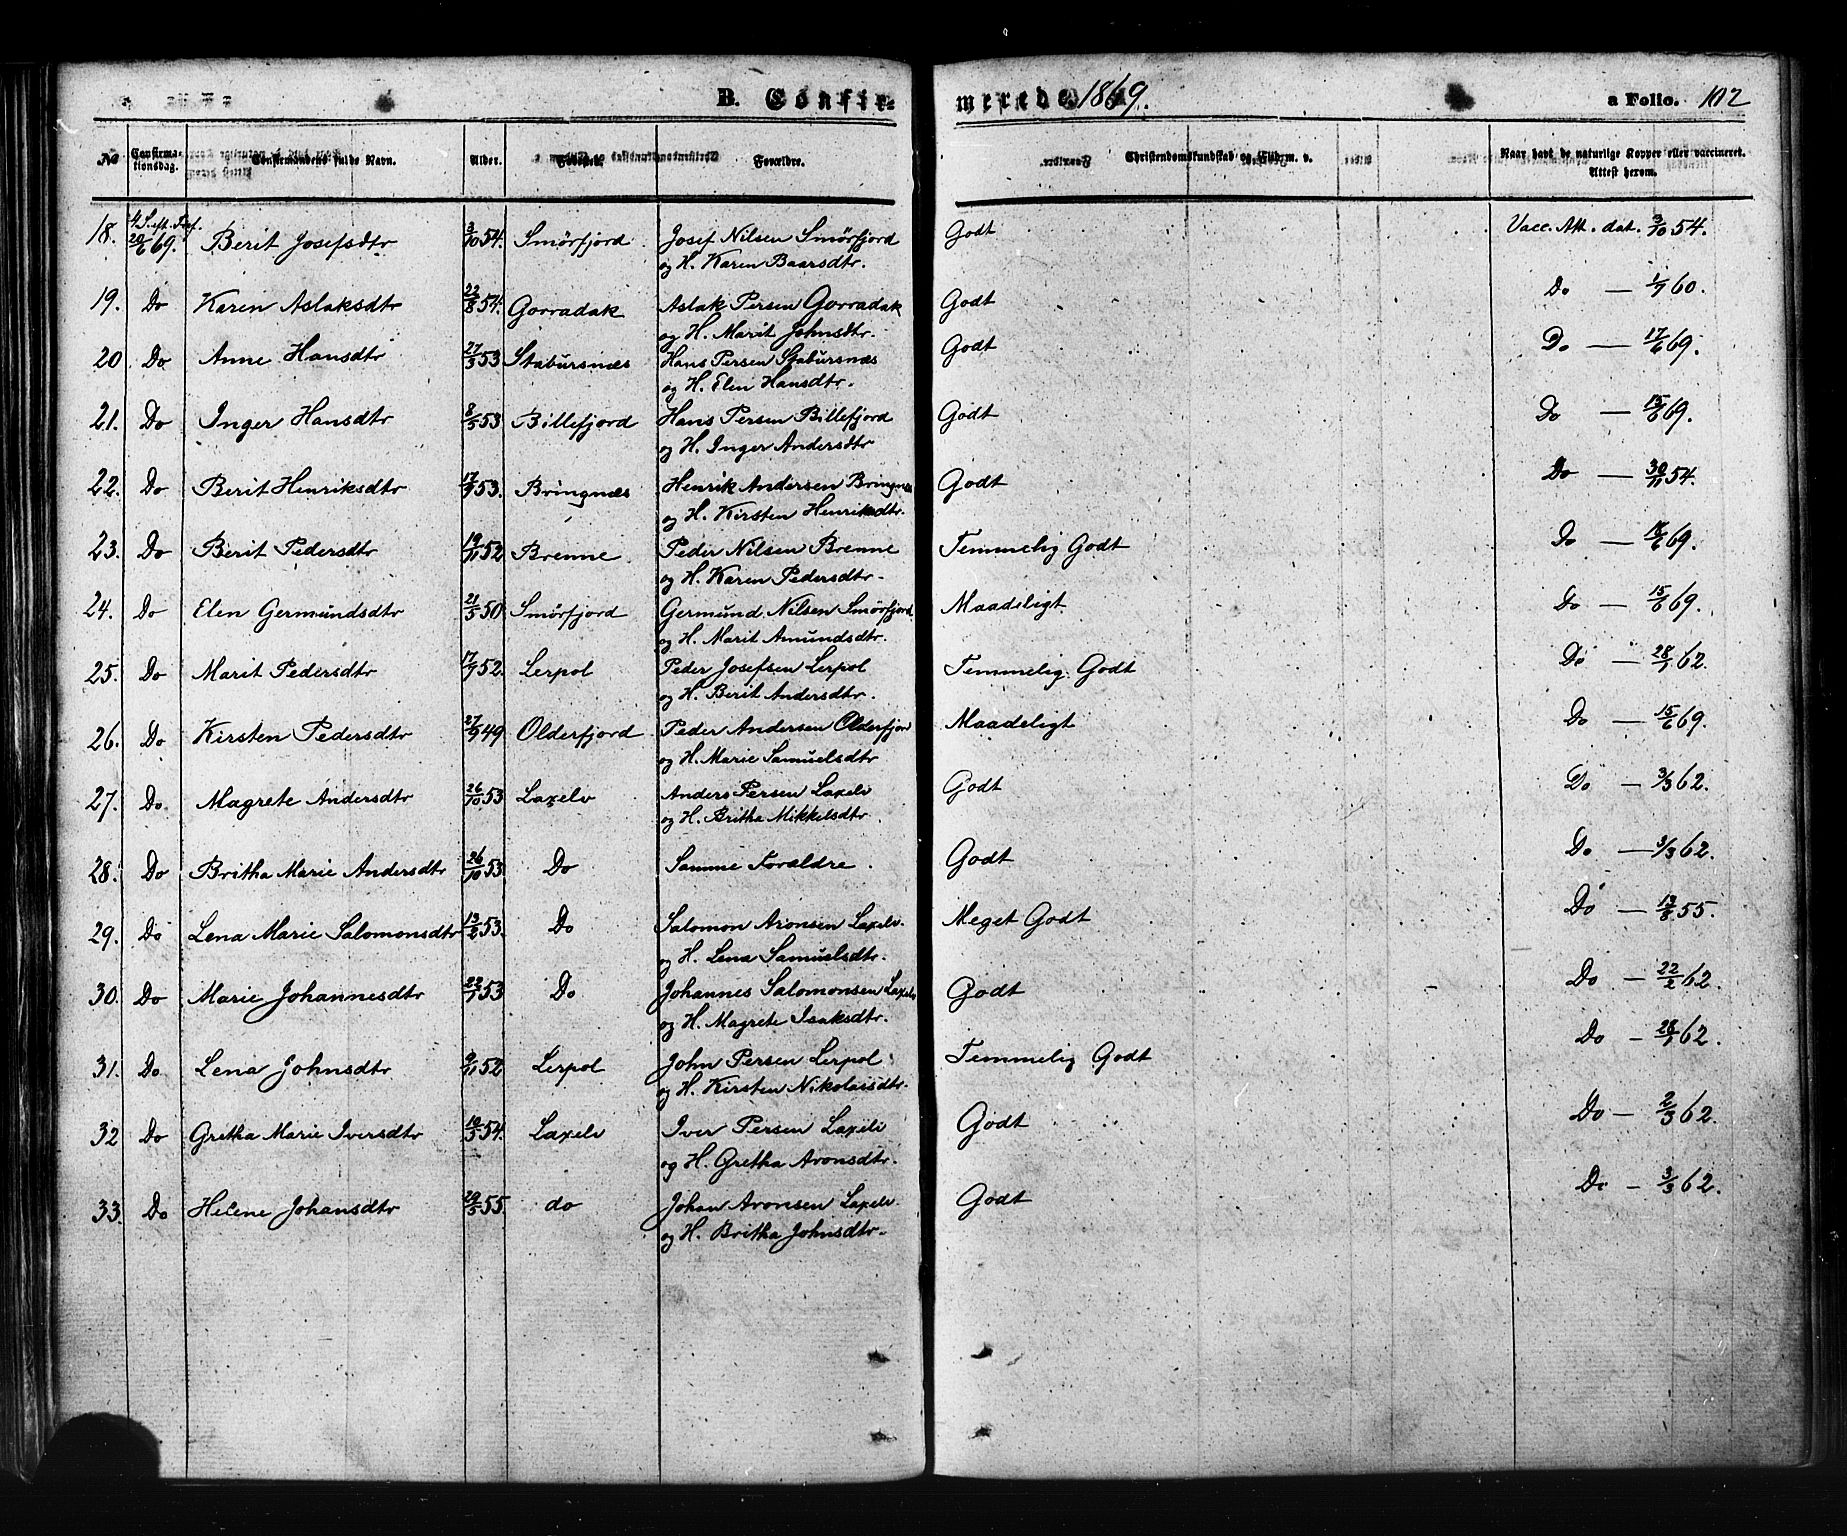 B. Confirmerede 1869. a Folio. 102
No Confirmationsdag. Confirmandens fulde Navn. Alder. Forældre. Christendomskundskab og Flid m. v. Naar havt de naturlige Kopper eller vaccineret. Attest herom.
18. 4 S. eft. Tref. 20/6 69. Berit Josefsdtr 3/10 54. Smörfjord Josef Nilsen Smörfjord Godt Vacc. Att. dat. 3/10 54.
og H. Karen Baarsdtr.
19. Do Karen Aslaksdtr 22/8 54. Gorradak Aslak Persen Gorradak Godt Do — 1/7 60.
og H. Marit Johnsdtr.
20 Do Anne Hansdtr 27/3 53 Stabursnæs Hans Persen Stabursnæs Godt Do — 17/6 69.
og H. Elen Hansdtr.
21. Do Inger Hansdtr 8/5 53 Billefjord Hans Persen Billefjord Godt Do — 15/6 69.
og H. Inger Andersdtr
22. Do Berit Henriksdtr 17/9 53. Bringnæs Henrik Andersen Bringnæs Godt Do — 30/11 54.
og H. Kirsten Henriksdtr.
23. Do Berit Pedersdtr 19/11 52 Brenne Peder Nilsen Brenne Temmelig Godt Do — /6 69.
og H. Karen Pedersdtr.
24. Do Elen Germundsdtr 21/5 50 Smörfjord Germund Nilsen Smörfjord. Maadeligt. Do — 15/6 69.
og H. Marit Amundsdtr.
25. Do Marit Pedersdtr 17/7 52. Lerpol Peder Josefsen Lerpol Temmelig Godt Do — 28/1 62.
og H. Berit Andersdtr.
26. Do Kirsten Pedersdtr 27/9 49 Olderfjord Peder Andersen Olderfjor Maadeligt Do — 15/6 69.
og H. Marie Samuelsdtr
27. Do. Magrete Andersdtr 26/10 53 Laxelv Anders Persen Laxelv Godt Do — 3/3 62.
og H. Britha Mikkelsdtr.
28. Do Britha Marie Andersdtr 26/10 53. Do Samme Forældre. Godt Do — 3/3 62.
29. Do Lena Marie Salomonsdtr 13/2 53. Do Salomon Aronsen Laxelv. Meget Godt Do — 55.
og H. Lena Samuelsdtr.
30. Do Marie Johannesdtr 22/7 53 Do Johannes Salomonsen Laxelv Godt Do — 22/2 62.
og H. Magrete Isaksdtr.
31. Do Lena Johnsdtr 9/11 52 Lerpol John Persen Lerpol Temmelig Godt Do — 28/1 62.
og H. Kirsten Nikolaisdtr.
32 Do Gretha Marie Iversdtr 10/3 54. Laxelv Iver Persen Laxelv Godt Do — 2/3 62.
og H. Gretha Aronsdtr.
33. Do Helene Johansdtr 29/5 55. do Johan Aronsen Laxelv. Godt Do — 3/3 62.
og H. Britha Johnsdtr.